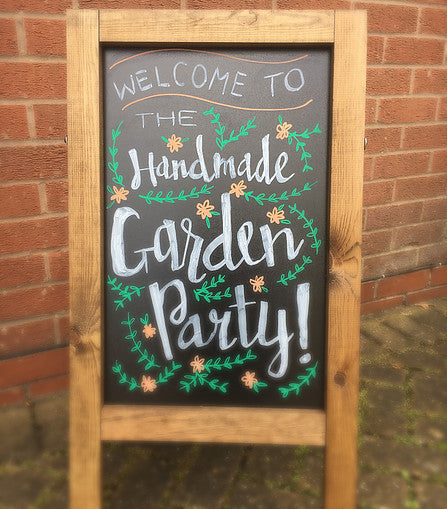 WELCOME TO
THE
Handmade
Garden
Party!